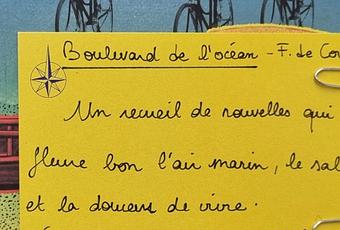 Boulevard de l'océan - F. de Co
Un recueil de nouvelles qui
fleure bon l'air marin, le sal
et la douceur de vivre.